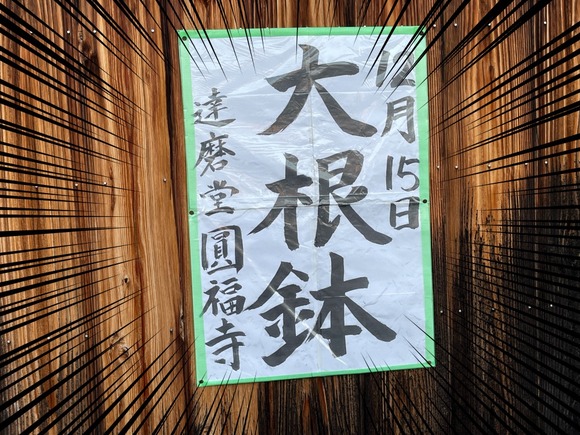 12月15日
大根鉢
達磨堂圓福寺